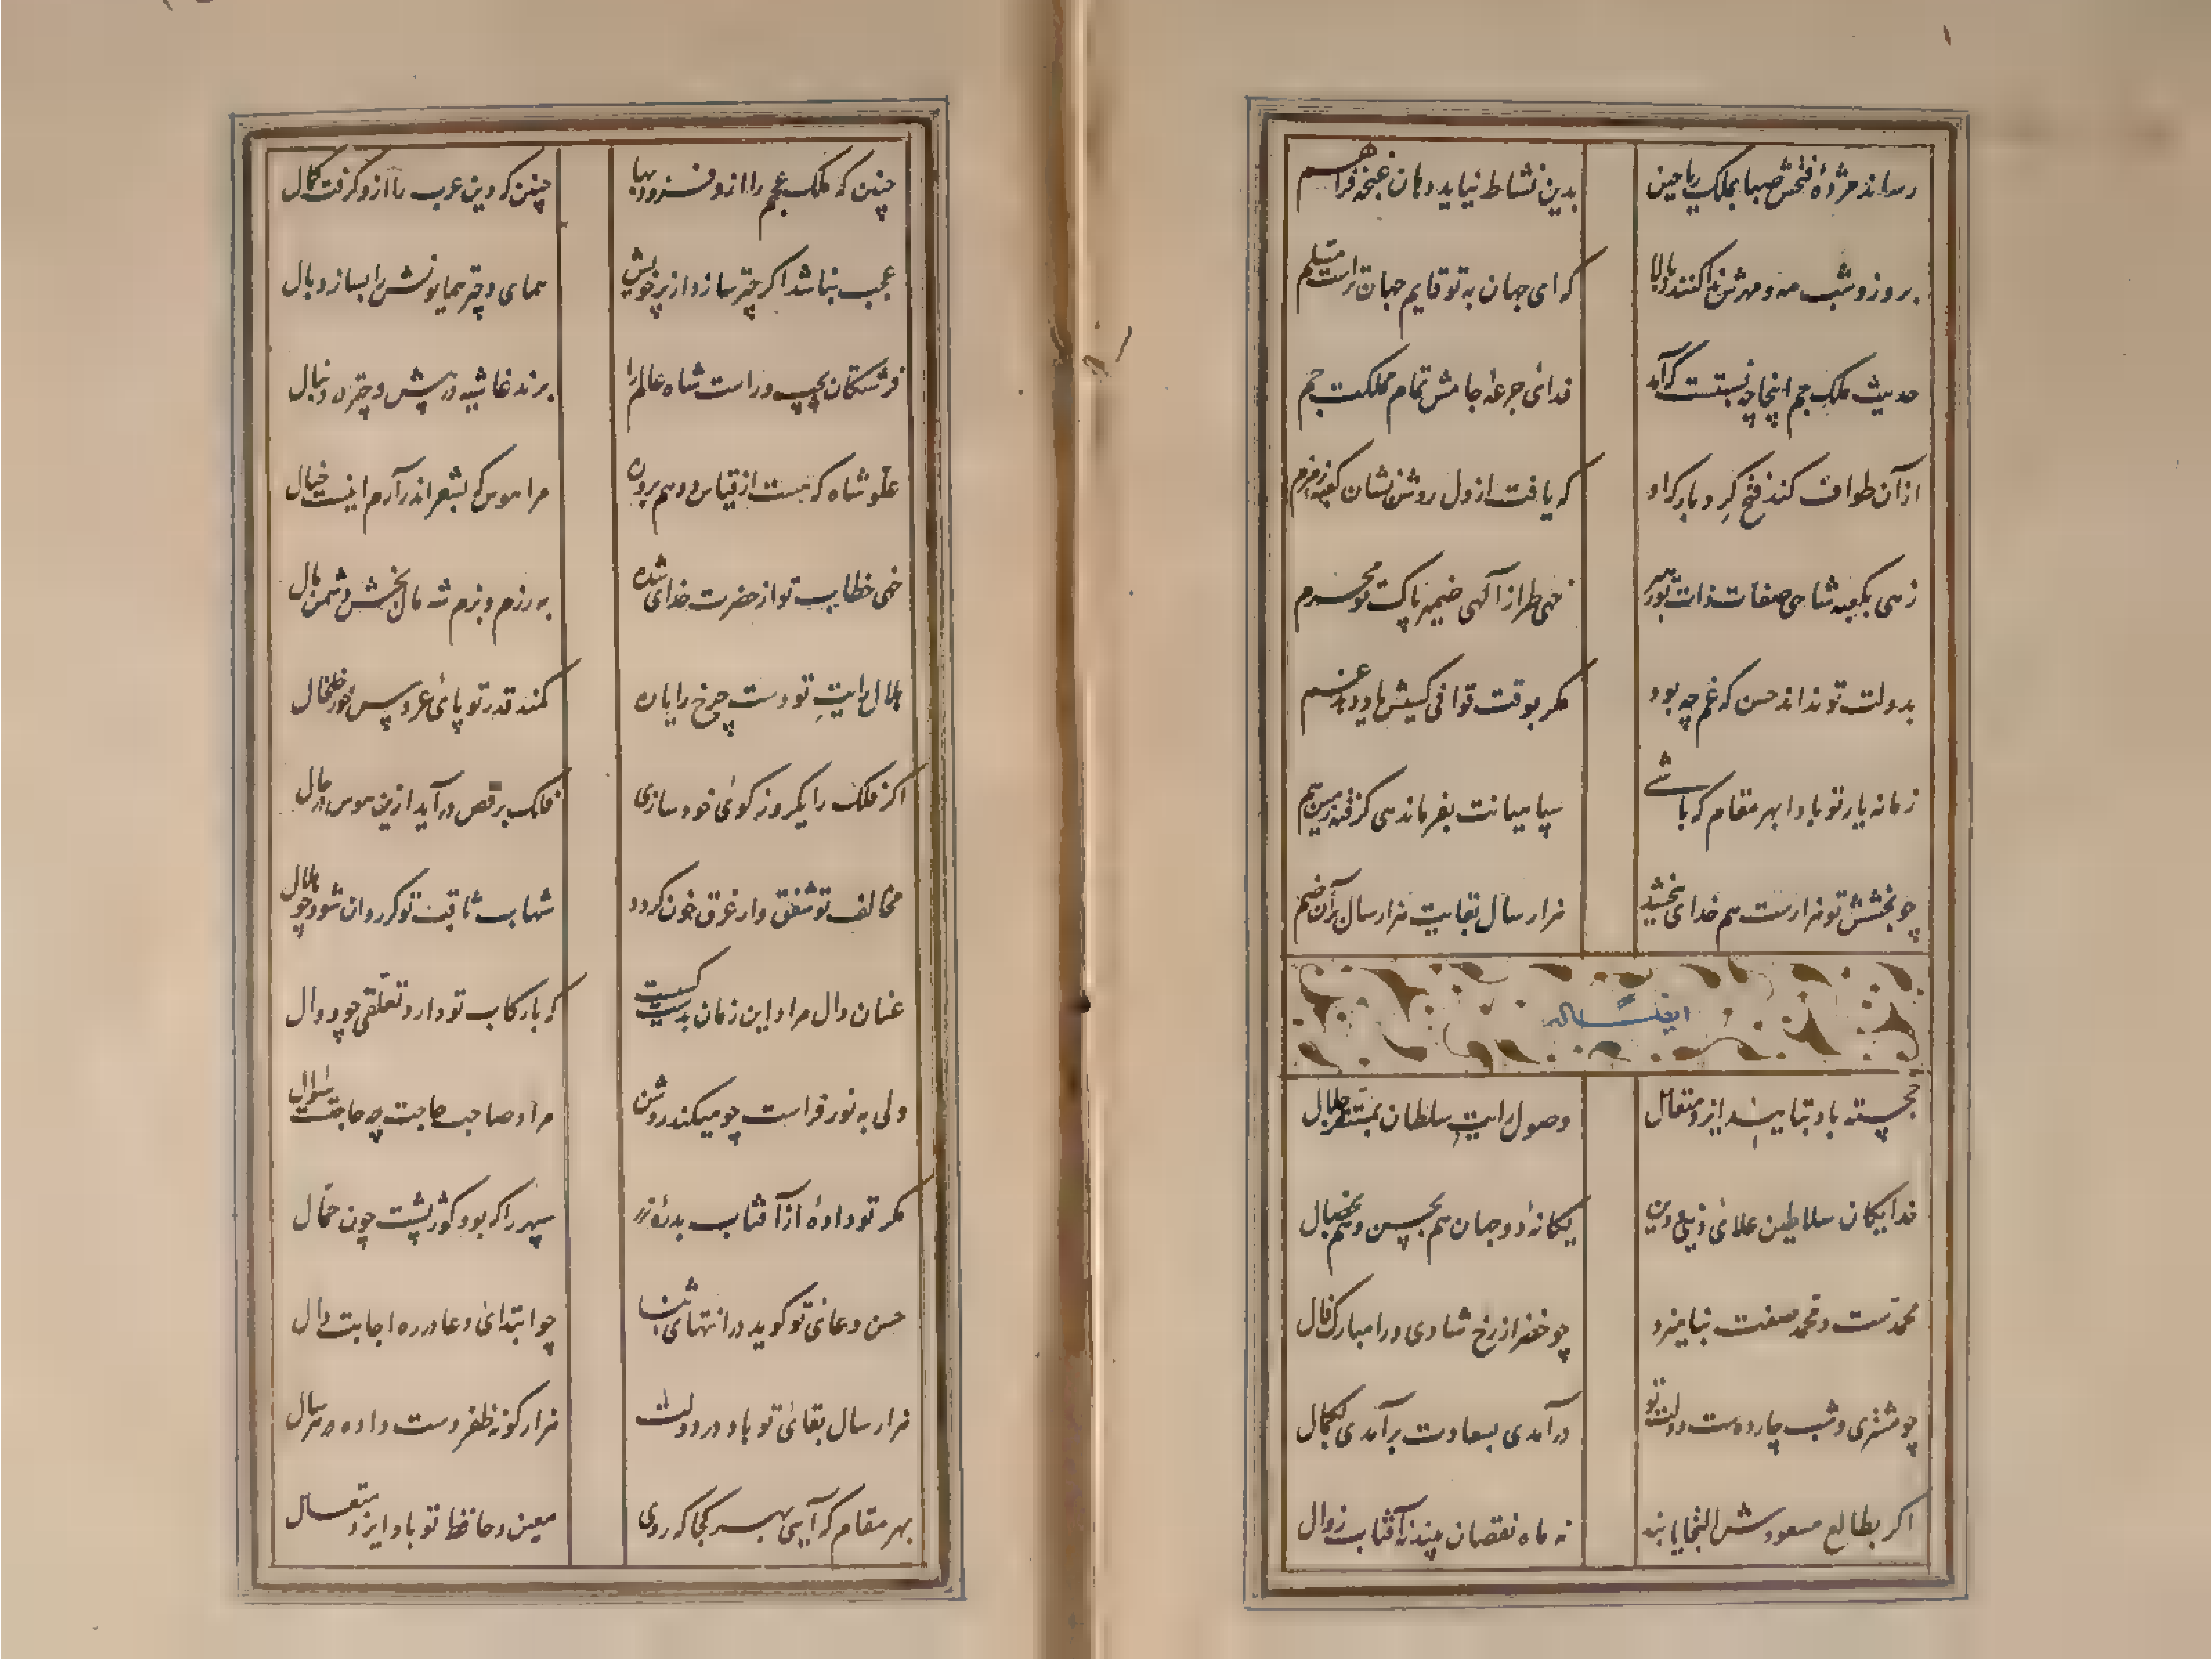 رساند مژدهٔ فتحش صبا بملک ریاحین بدین نشاط نیاید دهان غنچه فراهم
بروز و شب مه و مهرش ندا کنند ز بالا که ای جهان به تو قایم جهان تراست مسلم
حدیث ملک جم اینجا چه نسبتست که آمد فدای جرعهٔ جامش تمام مملکت جم
از آن طواف کند فتح کرد بارکه او که یافت از دل روشن نشان کعبه و زمزم
زهی بکعبهٔ شاهی صفات ذات تو زهی طراز آلهی ضمیر پاکت محرم
بدولت تو نداند حسن که غم چه بود مکر بوقت قوافی کیش
زمانه یار تو بادا بهر مقام که باشی سپاهیانت بفرماندهی کرفته زمین هم
چو بخشش تو هزارست هم خدای بخشید هزار سال بقایت هزار سال بر آن ضم
ایضاً له
خجسته باد بتایید ایزد متعال وصول رایت سلطان بمستقر جلال
خدایکان سلاطین علای دنیی و دین یکانهٔ دو جهان هم بحسن و هم بخصال
محمدست و محمد صفت بنامیزد چو خضر از رخ شادی ورا مبارک فال
چو مشتری و شب چارده ست دولت تو درآمدی بسعادت برآمدی بکمال
اکر بطالع مسعودش التجا یابند نه ماه نقصان بیند نه آفتاب زوال
چنین که ملک عجم را ازو فزود بها چنین که دین عرب را ازو کرفت کمال
عجب نباشد اکر چتر سازد از پر خویش همای و چتر همایونش را بسازد بال
فرشتکان بچپ و راست شاه عالم را برند غاشیه در پیش و چتر در دنبال
علو شاه که هست از قیاس و وهم برون مرا هوس که بشعر اندر آرم اینت خیال
خهی خطاب تو از حضرت خدای شده به رزم و بزم شه مال بخش دشمن مال
هلال رایت تو دست چرخ را یاره کمند قدر تو پای عروس خور خلخال
اکر فلک را یکروزه کوی خود سازی فلک برقص درآید ازین هوس در حال
مخالف تو شفق وار غرق خون کردد شهاب ثاقبت تو کر روان شود چو هلال
عنان دال مراد این زمان بدست که با رکاب تو دارد تعلقی چو دوال
ولی به نور فراست چو میکند روشن مراد صاحب حاجت چه حاجتست سوال
مکر تو دادهٔ از آفتاب بدرهٔ زر سپهر را که بود کوژ پشت چون حمال
حسن دعای تو کوید در انتهای ثنا چو ابتدای دعا در ره اجابت دال
هزار سال بقای تو باد در دولت هزار کونه ظفر دست داده هر سال
بهر مقام که آیی بهر کجا که روی معین و حافظ تو باد ایزد متعال